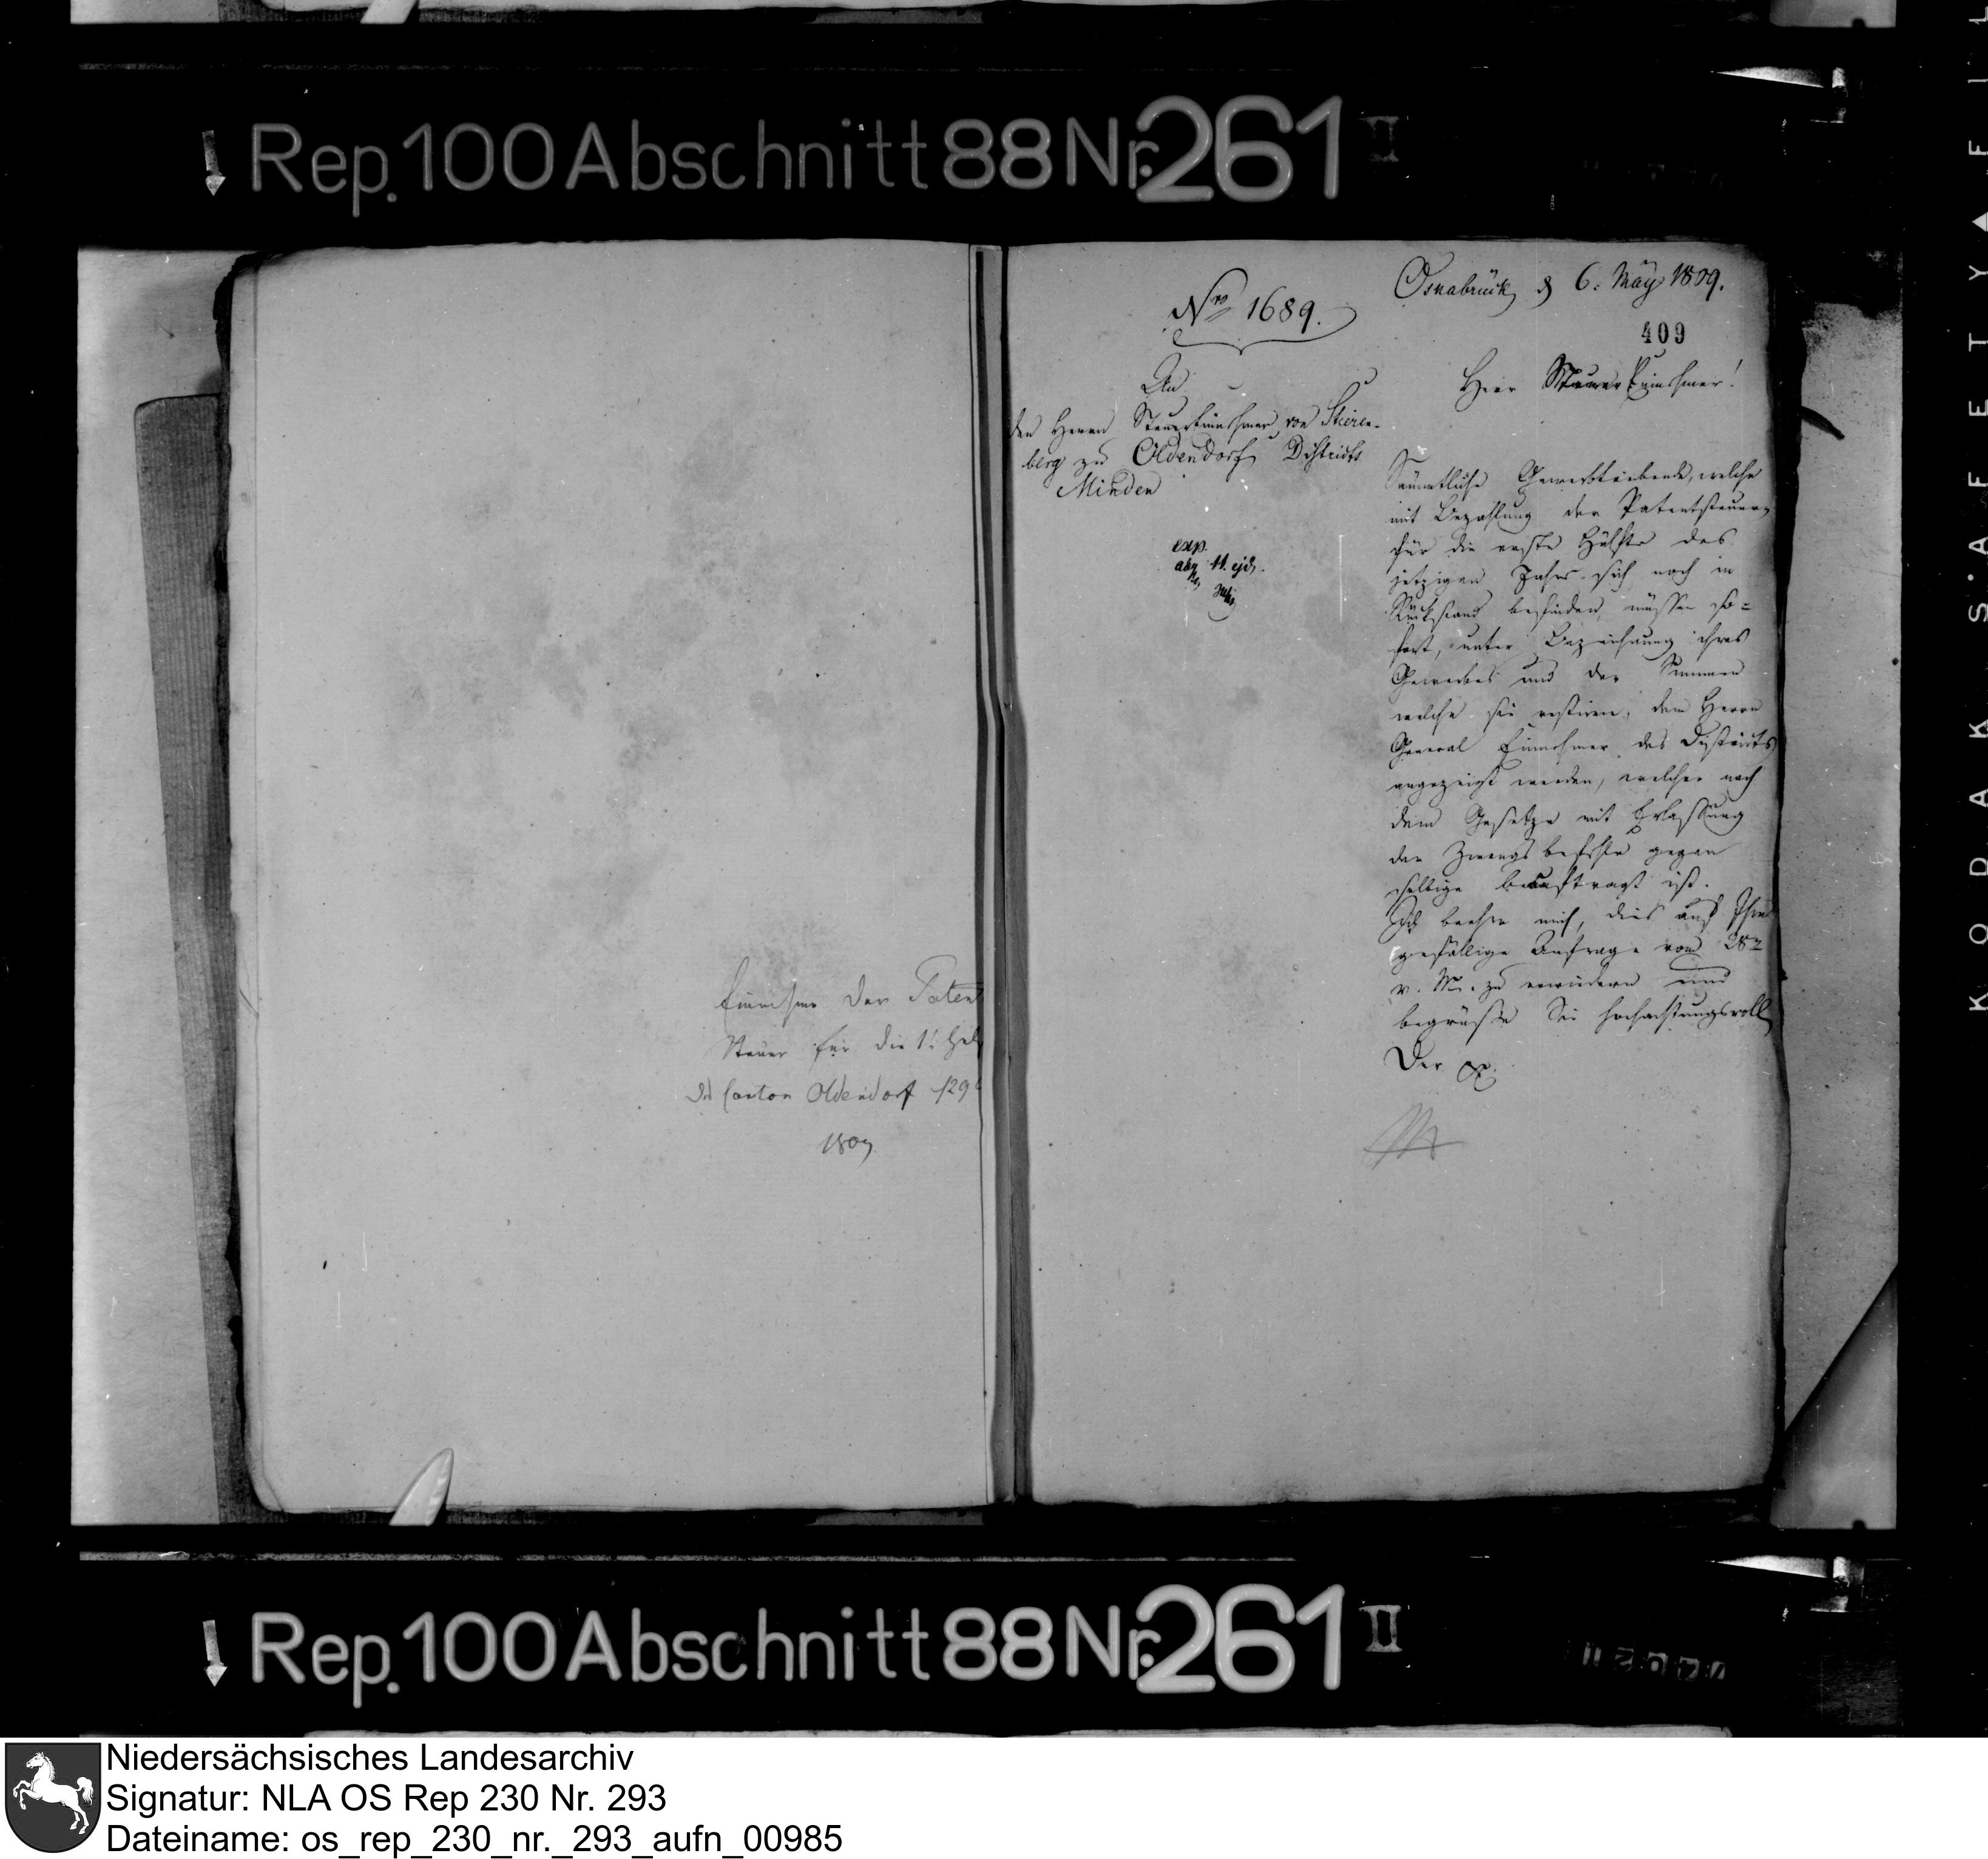 Rep. 100 Abschnitt 88 Nr. 261 II
Einnahme der Paten
Steuer für die 1t. Hel
des Canton Oldendorf 129
1809
Nro 1689.
An
den Herrn Steuereinnehmer von Stieren-
berg zu Oldendorf, Districts
Minden
exp.
11. ejd.
Osnabrück, d 6. May 1809.
409
Herr Steuer Einnehmer!
Sämmtliche Gewerbtreibende, welche
mit Bezahlung der Patentsteuer,
für die erste Hälfte des
jetzigen Jahrs sich noch in
Rückstand befinden, müssen so=
fort, unter Bezeichnung ihres
Gewerbes und der Summen
welche sie restiren, dem Herrn
General Einnehmer des Districts
angezeigt werden, welcher nach
dem Gesetze mit Erlassung
der Zwangsbefehle gegen
selbige beauftragt ist.
Ich beehre mich, dies auf Ihre
gefällige Anfrage vom 28n
v. M. zu erwiedern und
begrüße Sie hochachtungsvoll
Der
Rep. 100 Abschnitt 88 Nr. 261 II
KODAK SAFETY FIL
Niedersächsisches Landesarchiv
Signatur: NLA OS Rep 230 Nr. 293
Dateiname: os_rep_230_nr._293_aufn_00985